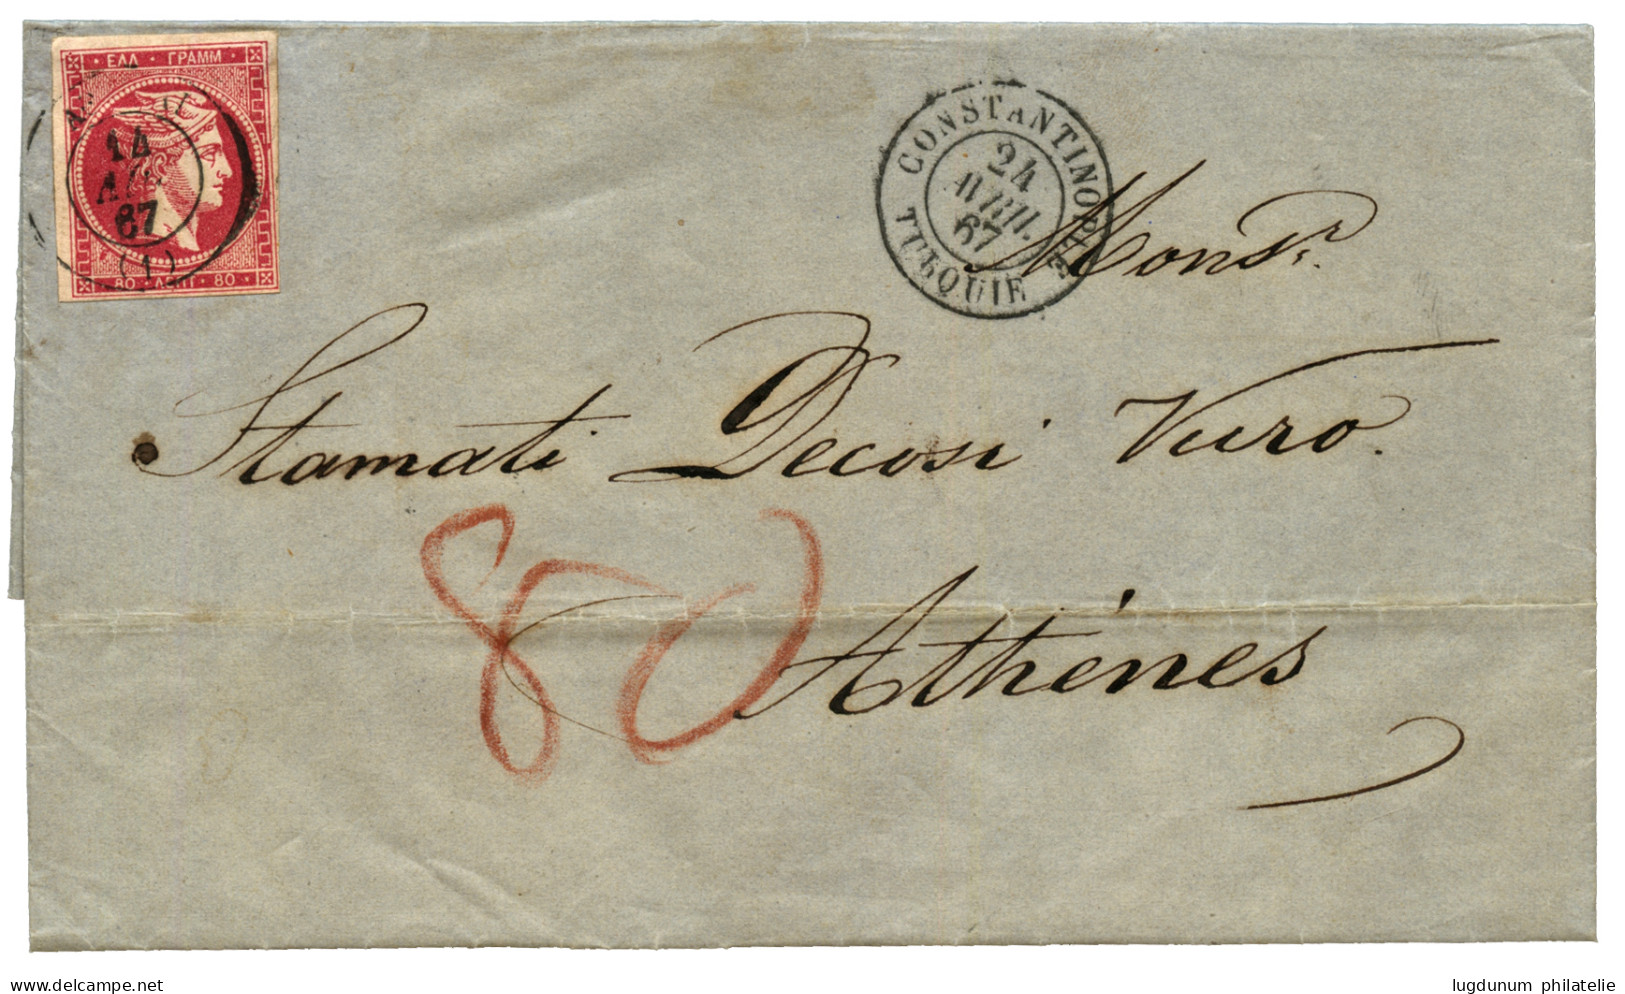 ΕΛΛ · ΓΡΑΜΜ
14
67
(1)
80 · ΛΕΠΤ · 80
CONSTANTINOPLE
24
AVRIL
67
TURQUIE
Monsr.
Stamati Decosi Vuro.
80
Athènes
www.delcampe.net
lugdunum philatelie